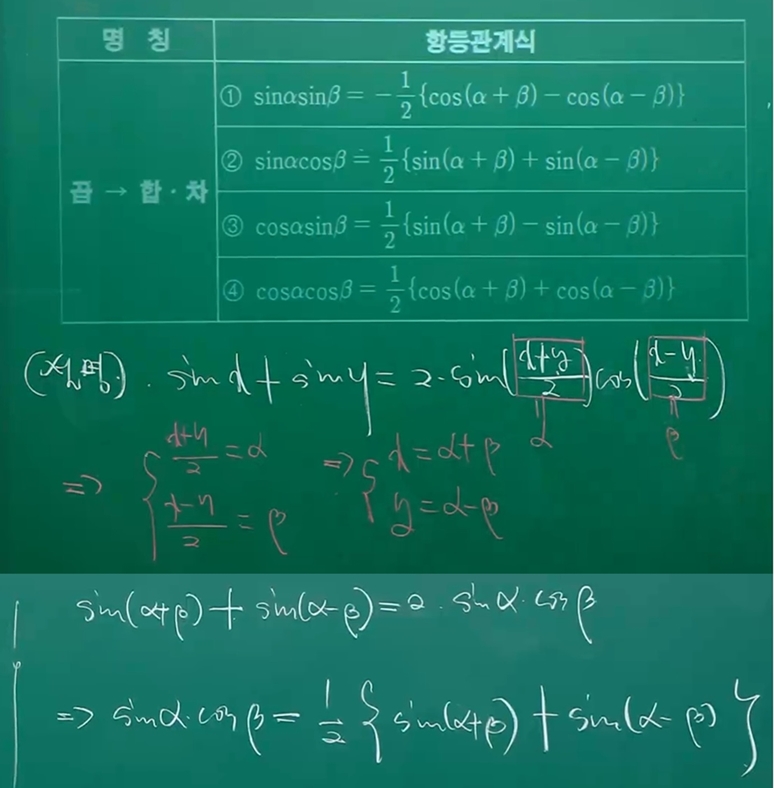 명 칭 항등관계식
곱 → 합 · 차
① sinαsinβ = -1/2{cos(α + β) - cos(α - β)}
② sinαcosβ = 1/2{sin(α + β) + sin(α - β)}
③ cosαsinβ = 1/2{sin(α + β) - sin(α - β)}
④ cosαcosβ = 1/2{cos(α + β) + cos(α - β)}
(설명). sin x + sin y = 2·sin((x+y)/2)cos((x-y)/2)
α β
⇒ { (x+y)/2 = α ⇒ { x = α+β
(x-y)/2 = β y = α-β
sin(α+β) + sin(α-β) = 2·sinα·cosβ
⇒ sinα·cosβ = 1/2 { sin(α+β) + sin(α-β) }